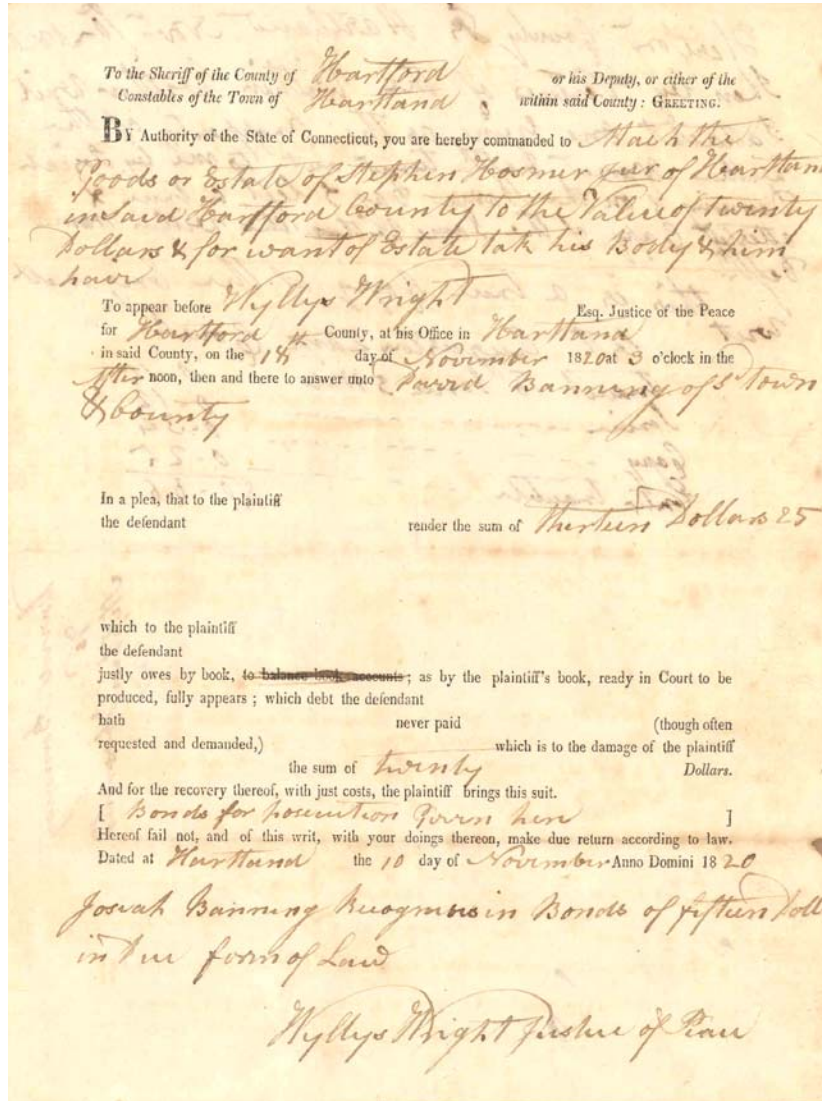 To the Sheriff of the County of Hartford or his Deputy, or either of the
Constables of the Town of Hartland . within said County: GREETING.
BY Authority of the State of Connecticut, you are hereby commanded to Attach the
Goods or Estate of Stephen Hosmer jur of Heartland
in Said Hartford County to the Value of twenty
Dollars & for want of Estate tak his Body & him
have
To appear before Wyllys Wright Esq. Justice of the Peace
for Hartford County, at his Office in Hartland
in said County, on the 18th day of November 1820 at 3 o'clock in the
After noon, then and there to answer unto David Banning of sd town
& County
In a plea, that to the plaintiff
the defendant render the sum of thirteen Dollars 25
which to the plaintiff
the defendant
justly owes by book, to balance book accounts; as by the plaintiff's book, ready in Court to be
produced, fully appears; which debt the defendant
hath never paid (though often
requested and demanded,) which is to the damage of the plaintiff
the sum of twenty Dollars.
And for the recovery thereof, with just costs, the plaintiff brings this suit.
[ Bonds for prosecution Given here ]
Hereof fail not, and of this writ, with your doings thereon, make due return according to law.
Dated at Hartland the 10 day of November Anno Domini 1820
Josiah Banning Recognises in Bonds of fifteen Doll
in Due form of Law
Wyllys Wright Justice of Peace